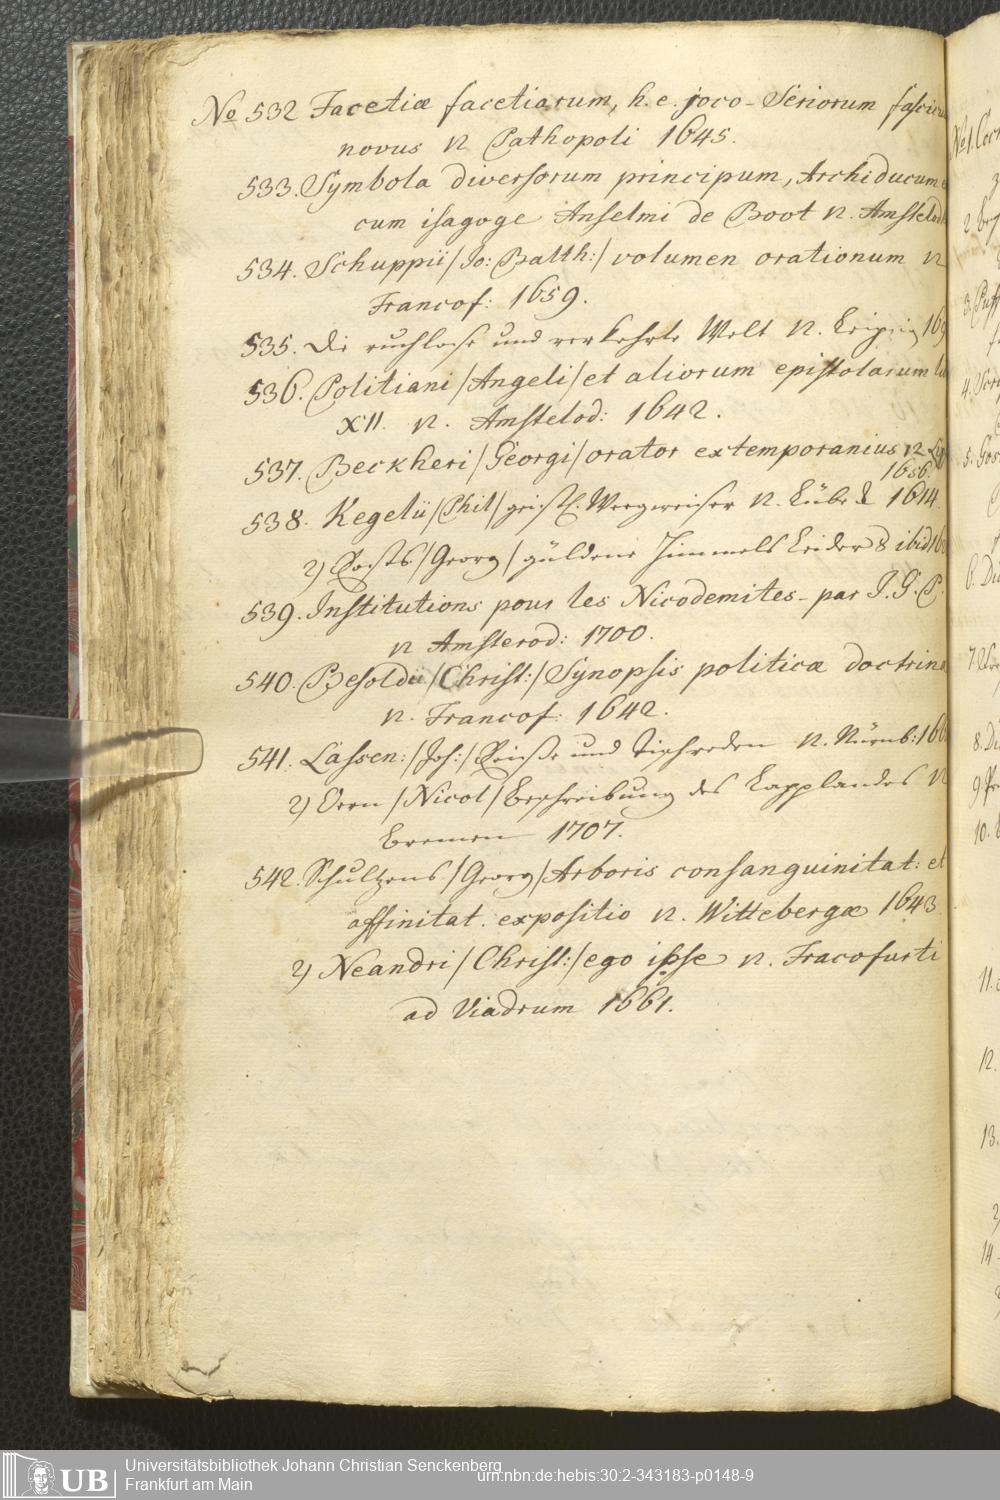 No 532 Facetiæ facetiarum, h. e. joco-Seriorum fascicu
novus 12 Pathopoli 1645.
533. Symbola diversorum principum, Archiducum
cum isagoge Anselmi de Boot 12. Amstelod
534. Schuppii /Jo: Balth:/ volumen orationum 12
Francof: 1659.
535. Die ruchlose und verkehrte Welt 12. Leipzig 169
536. Politiani /Angeli/ et aliorum epistolarum
XII. 12. Amstelod: 1642.
537. Beckheri /Georgi/ orator extemporanius 12
1656.
538. Kegelii /Phil/ geistl. Weegweiser 12. Lübek 1614.
2) /Georg/ güldene Himmels Leider 8 ibid
539. Institutions pour les Nicodemites - par J. G. P.
12 Amsterod: 1700.
540. Besoldii /Christ:/ Synopsis politicæ doctrinæ
12. Francof: 1642.
541. Lassen: /Joh:/ und Tischreden 12. Nürnb: 166
2) Oern /Nicol/ Beschreibung des Lapplandes 12
Bremen 1707.
542. Schultzens /Georg/ Arboris consanguinitat: et
affinitat. expositio 12. Wittebergæ 1643
2) Neandri /Christ:/ ego ipse 12. Fracofurti
ad Viadrum 1661.
No 1.
2.
3. Puff
4.
5.
6. Di
7.
8. Di
9.
10.
11.
12.
13.
2
14.
UB
Universitätsbibliothek Johann Christian Senckenberg
Frankfurt am Main
urn:nbn:de:hebis:30:2-343183-p0148-9